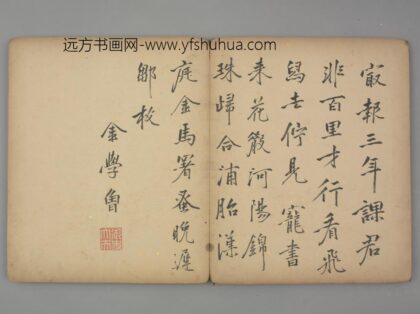 远方书画网-www.yfshuhua.com
㝡報三年課君
非百里才行看飛
舄去佇見 寵書
来花發河陽錦
珠歸合浦胎漢
庭金馬署蚤晚遲
鄒枚
金學曾